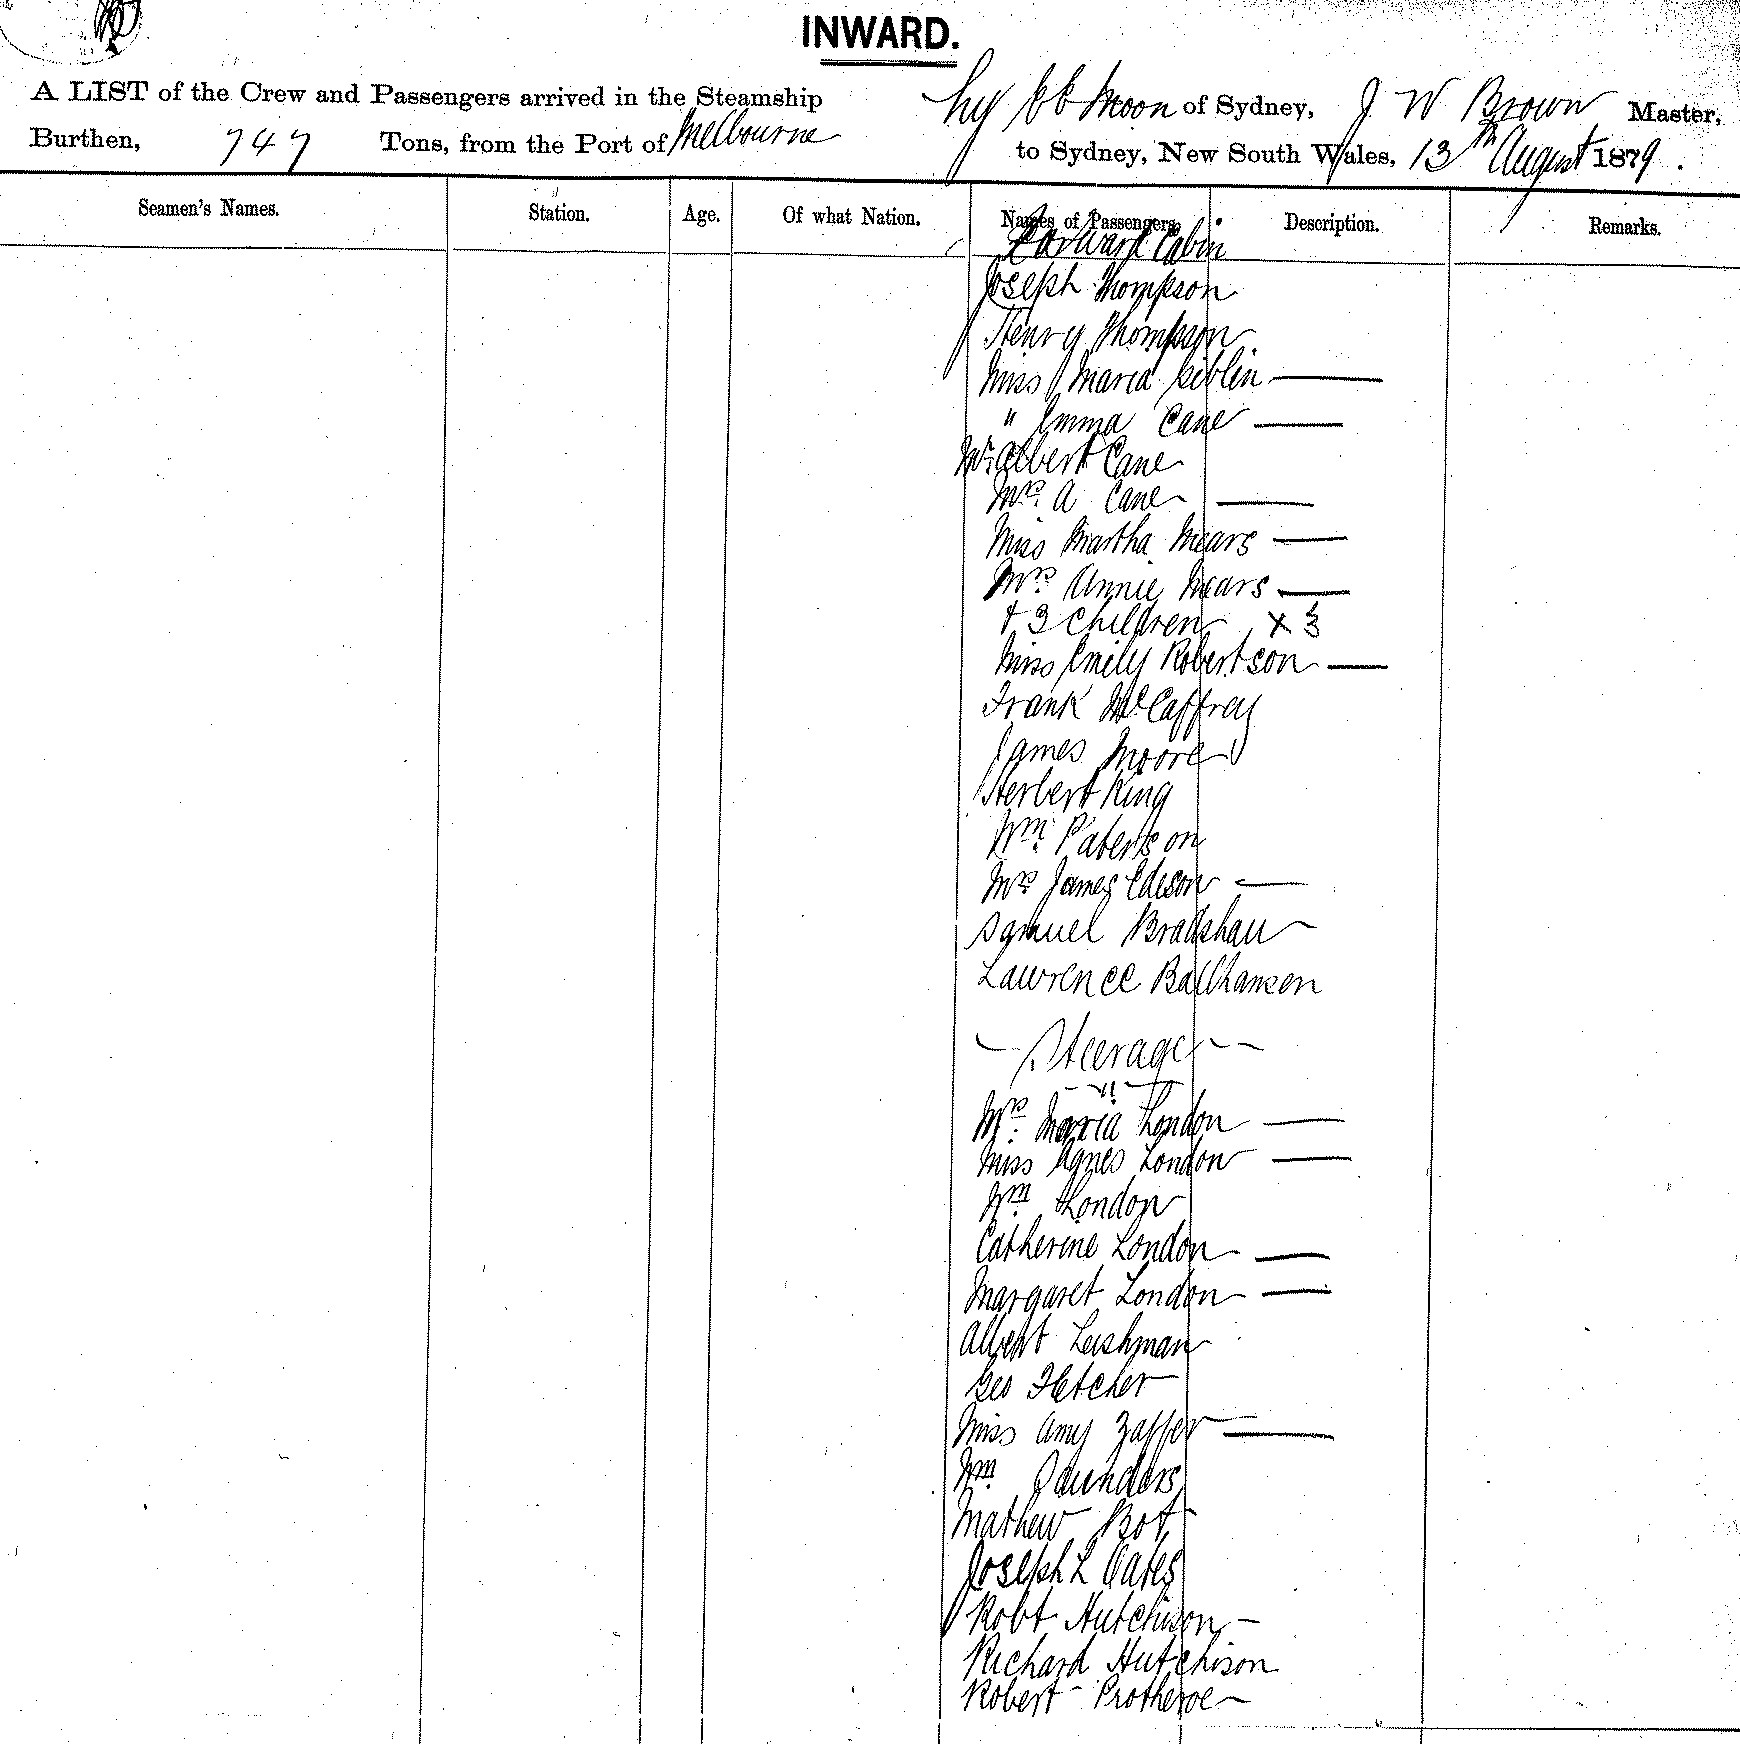 INWARD.
A LIST of the Crew and Passengers arrived in the Steamship Moon of Sydney, J W Brown Master,
Burthen, 747 Tons, from the Port of Melbourne to Sydney, New South Wales, 13th August 1879.
Seamen's Names. Station. Age. Of what Nation. Names of Passengers. Description. Remarks.
Forward Cabin
Joseph Thompson
Henry Thompson
Miss Maria Giblin
" Emma Cane
Mr. Albert Cane
Mrs. A Cane
Miss Martha Mears
Mrs. Annie Mears
+ 3 Children x 3
Miss Emily Robertson
Frank McCaffrey
James Moore
Herbert King
Wm. Paterson
Mrs James Edeson
Samuel Bradshaw
Lawrence Ballhausen
Steerage
Mrs. Maria London
Miss Agnes London
Wm London
Catherine London
Margaret London
Albert Leishman
Geo Fletcher
Miss Amy
Wm. Saunders
Mathew Bot
Joseph L Oates
Robt Hutchison
Richard Hutchison
Robert Protheroe